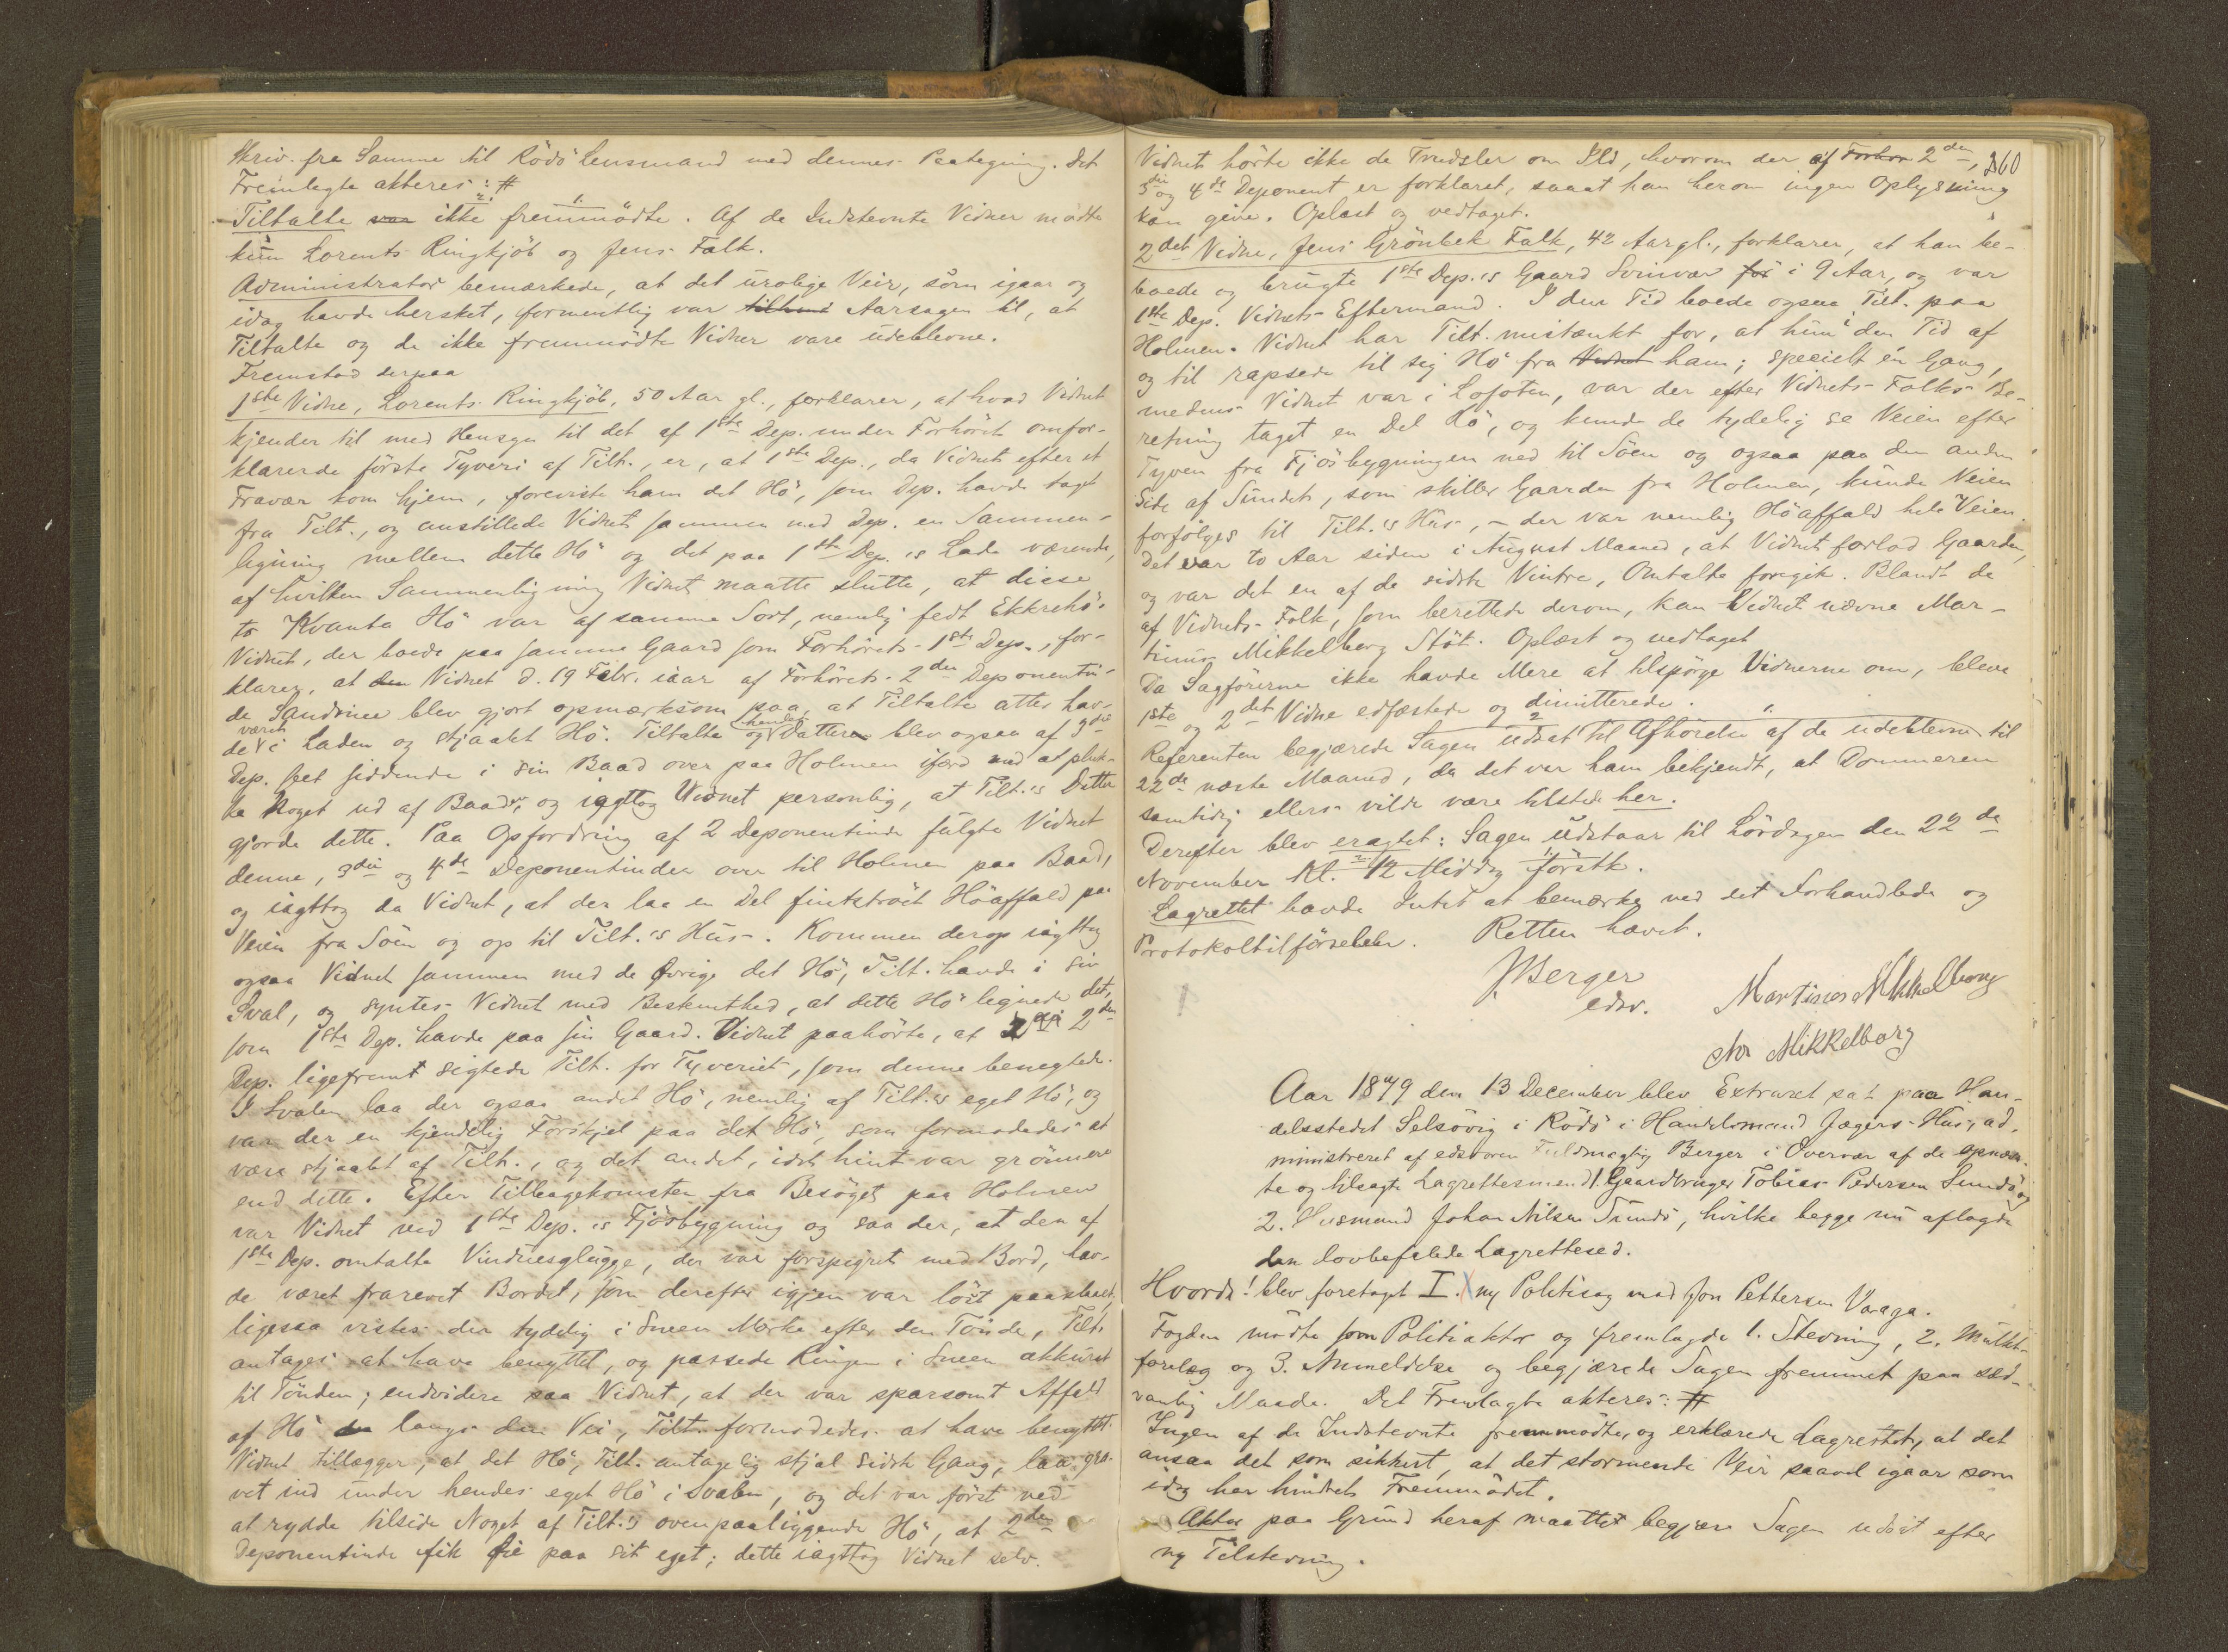 Skriv. fra Samme til Rödö Lensmand med dennes Paategning. Det
Fremlagte akteres: #
Tiltalte var ikke fremmödte. Af de Indstevnte Vidner mödte
kun Lorents Ringkjöb og Jens Falk.
Administrator bemærkede, at det urolige Veir, som igaar og
idag havde hersket, formentlig var Aarsagen til, at
Tiltalte og de ikke fremmödte Vidner vare udeblevne.
Fremstod derpaa
1ste Vidne, Lorents Ringkjöb, 50 Aar gl., forklarer, at hvad Vidnet
kjender til med Hensyn til det af 1ste Dep. under Forhöret omfor-
klarede förste Tyveri af Tilt., er, at 1ste Dep., da Vidnet efter et
Fravær kom hjem, foreviste ham det Hö, som Dep. havde taget
fra Tilt., og anstillede Vidnet sammen med Dep. en Sammen-
ligning mellem dette Hö og det paa 1ste Dep.'s Lade værende,
af hvilken Sammenligning Vidnet maatte slutte, at disse
to Kvanta Hö var af samme Sort, nemlig fedt Ekkrehö.
Vidnet, der boede paa samme Gaard som Forhörets 1ste Dep., for-
klarer, at den Vidnet d. 19 Febr. iaar af Forhörets 2den Deponentin-
de Sandvine blev gjort opmærksom paa, at Tiltalte atter hav-
de været i Laden og stjaalet Hö. Tiltalte og hendes Datter blev ogsaa af 3die
Dep. seet siddende i sin Baad over paa Holmen ifærd med at pluk-
ke Noget ud af Baaden, og iagttog Vidnet personlig, at Tilt.'s Datter
gjorde dette. Paa Opfordring af 2 Deponentinde fulgte Vidnet
denne, 3die og 4de Deponentinder over til Holmen paa Baad,
og iagttog da Vidnet, at der laa en Del finströet Höaffald paa
Veien fra Söen og op til Tilt.'s Hus. Kommen derop iagttog
ogsaa Vidnet sammen med de Övrige det Hö, Tilt. havde i sin
Sval, og syntes Vidnet med Bestemthed, at dette Hö lignede det,
som 1ste Dep. havde paa sin Gaard. Vidnet paahörte, at 2den
Dep. ligefremt sigtede Tilt. for Tyveriet, som denne benegtede.
I Svalen laa der ogsaa andet Hö, nemlig af Tilt.'s eget Hö, og
var der en kjendelig Forskjel paa det Hö, som formodedes at
være stjaalet af Tilt., og det andet, idet hint var grönnere
end dette. Efter Tilbagekomsten fra Besöget paa Holmen
var Vidnet ved 1ste Dep.'s Fjösbygning og saa der, at den af
1ste Dep. omtalte Vinduesglugge, der var forspigret med Bord, hav-
de været frarevet Bordet, som derefter igjen var löst paaslaaet,
ligesaa vistes der tydelig i Sneen Mærke efter den Tönde, Tilt.
antages at have benyttet, og passede Ringen i Sneen akkurat
til Tönden; endvidere saa Vidnet, at der var sparsomt Affald
af Hö langs den Vei, Tilt. formodedes at have benyttet.
Vidnet tillægger, at det Hö, Tilt. antagelig stjal sidste Gang, laa gra-
vet ind under hendes eget Hö i Svalen, og det var först ved
at rydde tilside Noget af Tilt.'s ovenpaaliggende Hö, at 2den
Deponentinde fik Öie paa sit eget; dette iagttog Vidnet selv.
Vidnet hörte ikke de Trudsler om Ild, hvorom der af Forhör 2den, 260
3die og 4de Deponent er forklaret, saaat han herom ingen Oplysning
kan give. Oplæst og vedtaget.
2det Vidne, Jens Grönbek Falk, 42 Aar gl., forklarer, at han be-
boede og brugte 1ste Dep.'s Gaard Svinvær för i 9 Aar, og var
1ste Dep. Vidnets Eftermand. I den Tid boede ogsaa Tilt. paa
Holmen. Vidnet har Tilt. mistænkt for, at hun i den Tid af
og til rapsede til sig Hö fra Vidnet ham; specielt én Gang,
medens Vidnet var i Lofoten, var der efter Vidnets Folks Be-
retning taget en Del Hö, og kunde de tydelig se Veien efter
Tyven fra Fjösbygningen ned til Söen og ogsaa paa den anden
Side af Sundet, som skiller Gaarden fra Holmen, kunde Veien
forfölges til Tilt.'s Hus, – der var nemlig Höaffald hele Veien.
Det var to Aar siden i August Maaned, at Vidnet forlod Gaarden,
og var det en af de sidste Vintre, Omtalte foregik. Blandt de
af Vidnets Folk, som berettede derom, kan Vidnet nævne Mar-
tinus Mikkelborg Stöt. Oplæst og vedtaget
Da Sagförerne ikke havde Mere at tilspörge Vidnerne om, bleve
1ste og 2det Vidne edfæstede og dimitterede.
Referenten begjærede Sagen udsat til Afhörelse af de udeblevne til
22de næste Maaned, da det var ham bekjendt, at Dommeren
samtidig ellers vilde være tilstede her.
Derefter blev eragtet: Sagen udstaar til Lördagen den 22de
November Kl. 12 Middag förstk.
Lagrettet havde Intet at bemærke ved det Forhandlede og
Protokoltilförselen. Retten hævet.
JBerger
edsv. Martinus Mikkelborg
Mikkelborg
Aar 1879 den 13 December blev Extraret sat paa Han-
delsstedet Selsövig i Rödö i Handelsmand Jægers Hus, ad-
ministreret af edsvoren Fuldmægtig Berger i Overvær af de opnævn-
te og tilsagte Lagrettesmend 1. Gaardbruger Tobias Pedersen Sundö og
2. Husmand Johan Nilsen Sundö, hvilke begge nu aflagde
den lovbefalede Lagrettesed.
Hvorda! blev foretaget I. ny Politisag mod Jon Pettersen Vaaga.
Fogden mödte som Politiaktor og fremlagde 1. Stevning, 2. Mulkt-
forelæg og 3. Anmeldelse og begjærede Sagen fremmet paa sæd-
vanlig Maade. Det Fremlagte akteres: #
Ingen af de Indstevnte fremmödte, og erklærede Lagrettet, at det
ansaa det som sikkert, at det stormende Veir saavel igaar som
idag har hindret Fremmödet.
Aktor paa Grund heraf maattet begjære Sagen udsat efter
ny Tilstevning.